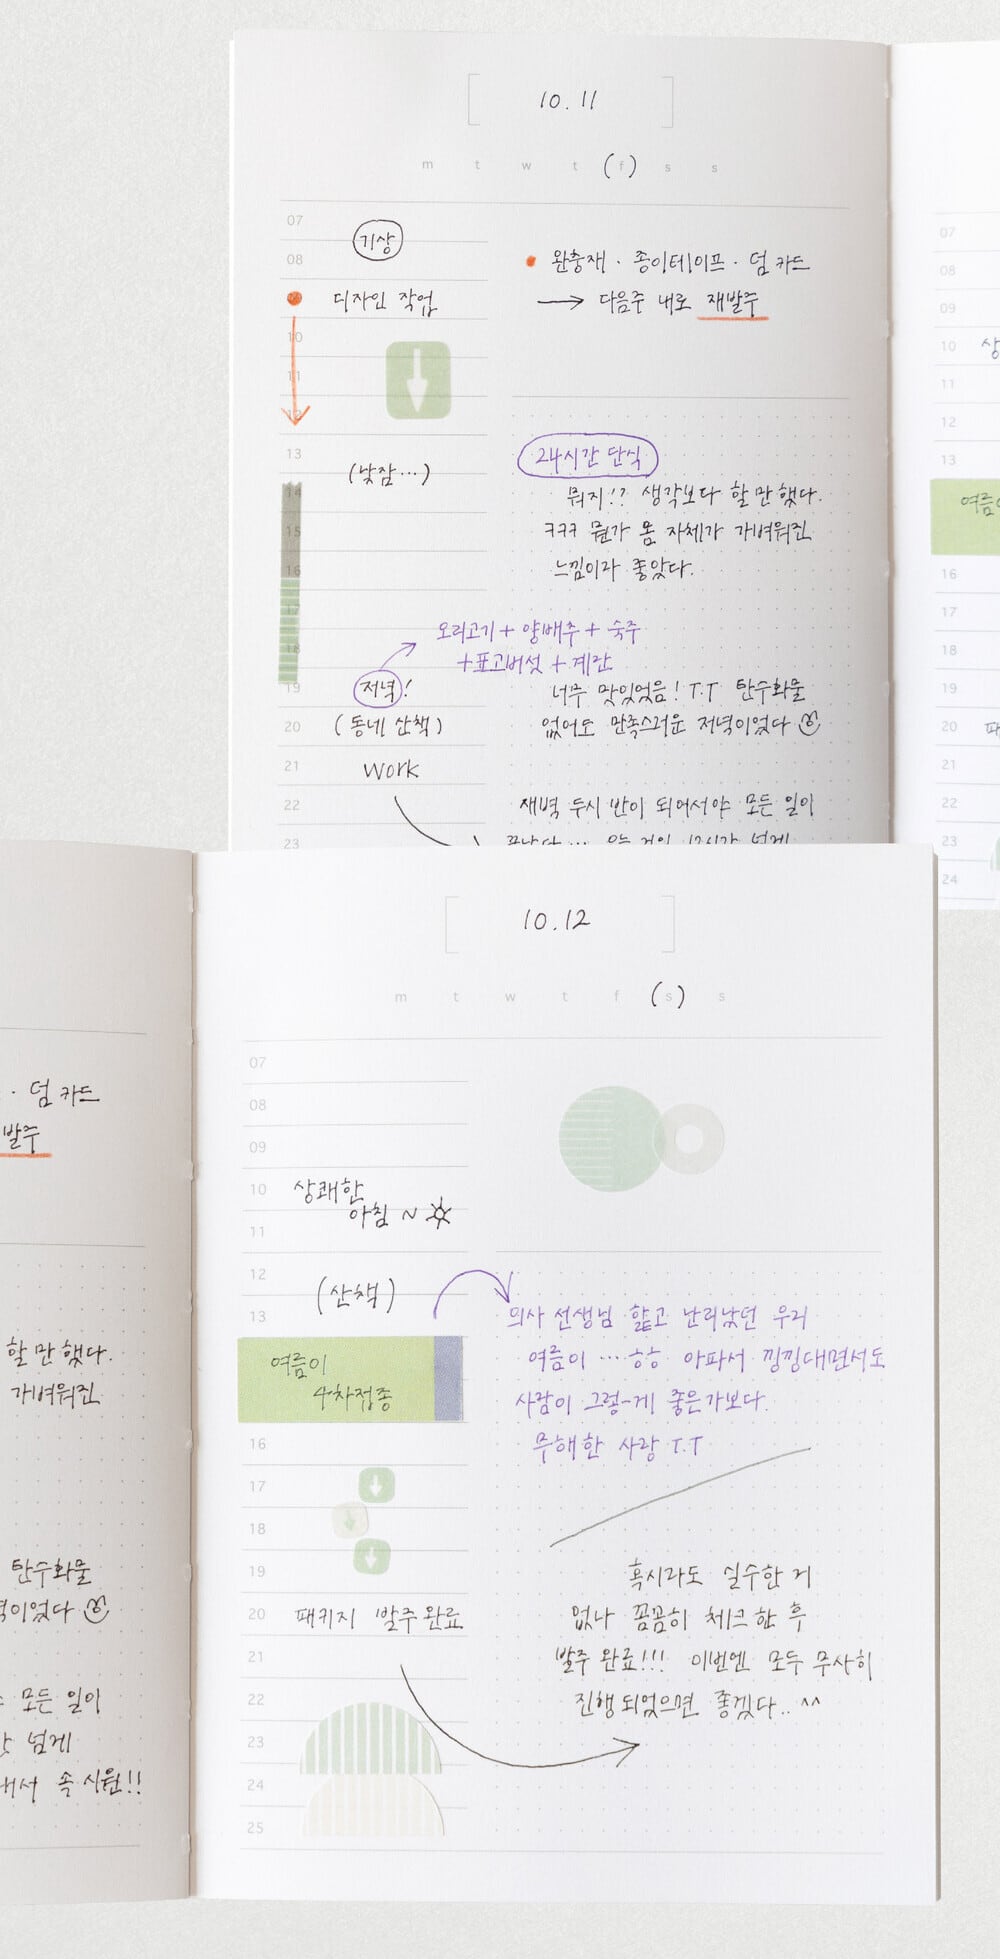 10.11
m t w t (f) s s
07
기상
08
디자인 작업
10
11
12
13
(낮잠…)
14
15
16
17
18
19
저녁!
20
(동네 산책)
21
Work
22
23
• 완충재 · 종이테이프 · 덤 카드
→ 다음주 내로 재발주
24시간 단식
뭐지!? 생각보다 할 만 했다.
ㅋㅋㅋ 뭔가 몸 자체가 가벼워진
느낌이라 좋았다.
오리고기 + 양배추 + 숙주
+ 표고버섯 + 계란
너무 맛있었음! T.T 탄수화물
없어도 만족스러운 저녁이었다
새벽 두시 반이 되어서야 모든 일이
끝났다… 오늘 거의 12시간 넘게
07
08
09
10
상
11
12
13
여름이
16
17
18
19
20
패
21
22
23
24
· 덤 카드
발주
할 만 했다.
가벼워진
탄수화물
이었다
모든 일이
넘게
해서 속 시원!!
10.12
m t w t f (s) s
07
08
09
10
상쾌한
아침 ~
11
12
(산책)
13
여름이
4차접종
16
17
18
19
20
패키지 발주 완료
21
22
23
24
25
의사 선생님 핥고 난리났던 우리
여름이 … ㅎㅎ 아파서 낑낑대면서도
사람이 그렇-게 좋은가보다.
무해한 사랑 T.T
혹시라도 실수한 거
없나 꼼꼼히 체크한 후
발주 완료!!! 이번엔 모두 무사히
진행되었으면 좋겠다.. ^^